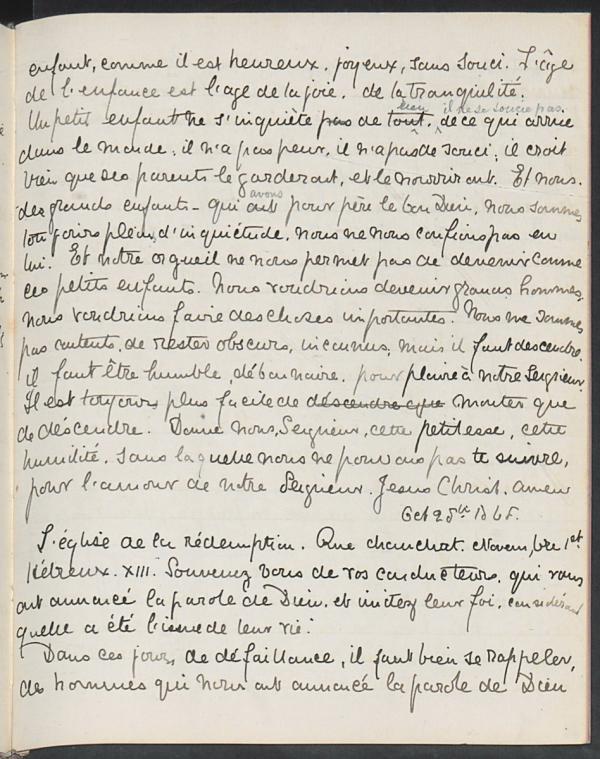 enfant, comme il est heureux, joyeux, sans souci. L'âge
de l'enfance est l'age de la joie, de la tranquilité.
rien il ne se soucie pas
Un petit enfant ne s'inquiète pas de tout, de ce qui arrive
dans le monde; il n'a pas peur, il n'a pas de souci; il croit
bien que ses parents le garderont, et le nourriront. Et nous.
avons
des grands enfants - qui ont pour père le bon Dieu, nous sommes
toujours pleins d'inquiétude, nous ne nous confions pas en
lui. Et notre orgueil ne nous permet pas de devenir comme
ces petits enfants. Nous voudrions devenir grands hommes,
nous voudrions faire des choses importantes. Nous ne sommes
pas contents, de rester obscurs, inconnus, mais il faut descendre,
il faut être humble, débonnaire, pour plaire à notre Seigneur.
Il est toujours plus facile de descendre que monter que
de déscendre. Donne nous, Seigneur, cette petitesse, cette
humilité, sans laquelle nous ne pouvons pas te suivre,
pour l'amour de notre Seigneur. Jesus Christ. Amen
Oct 25th
L'église de la rédemption. Novembre 1st
Hébreux. XIII. Souvenez vous de vos conducteurs, qui vous
ont annoncé la parole de Dieu, et imitez leur foi, considérant
quelle a été l'issue de leur vie.
Dans ces jours, de défaillance, il faut bien se rappeler,
des hommes qui nous ont annoncé la parole de Dieu